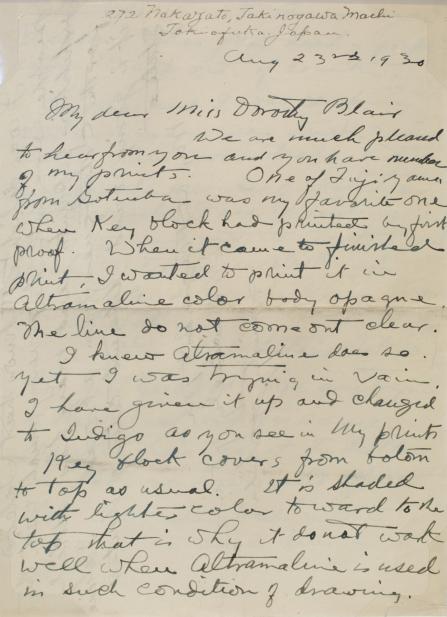 272 Nakazato, Takinogawa Machi
Tokiofuka. Japan.
Aug 23rd 1930
My dear Miss Dorothy Blair
We are much pleased
to hear from you and you have number
of my prints. One of Fujiyama
from Gotemba was my favorite one
when Key block had printed by first
proof. When it came to finished
print, I wanted to print it in
Altramaline color body opaque.
The line do not come out clear.
I knew Altramaline does so.
yet I was trying in vain.
I have given it up and changed
to Indigo as you see in my prints
Key block covers from botom
to top as usual. It is shaded
with lighter color to ward to the
top that is why it do not work
well when Altramaline is used
in such condition of drawing.